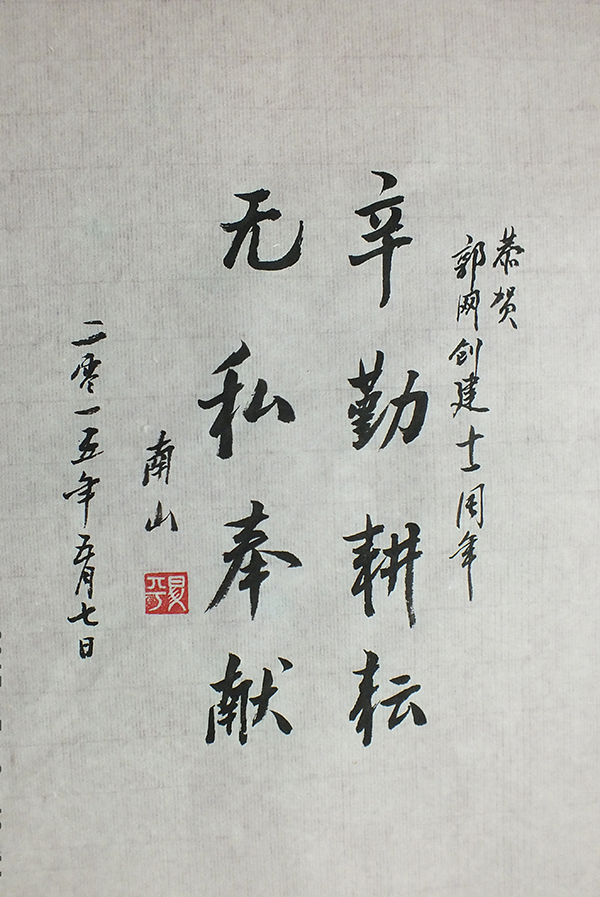 恭贺
郭网创建十一周年
辛勤耕耘
无私奉献
南山
二零一五年五月七日